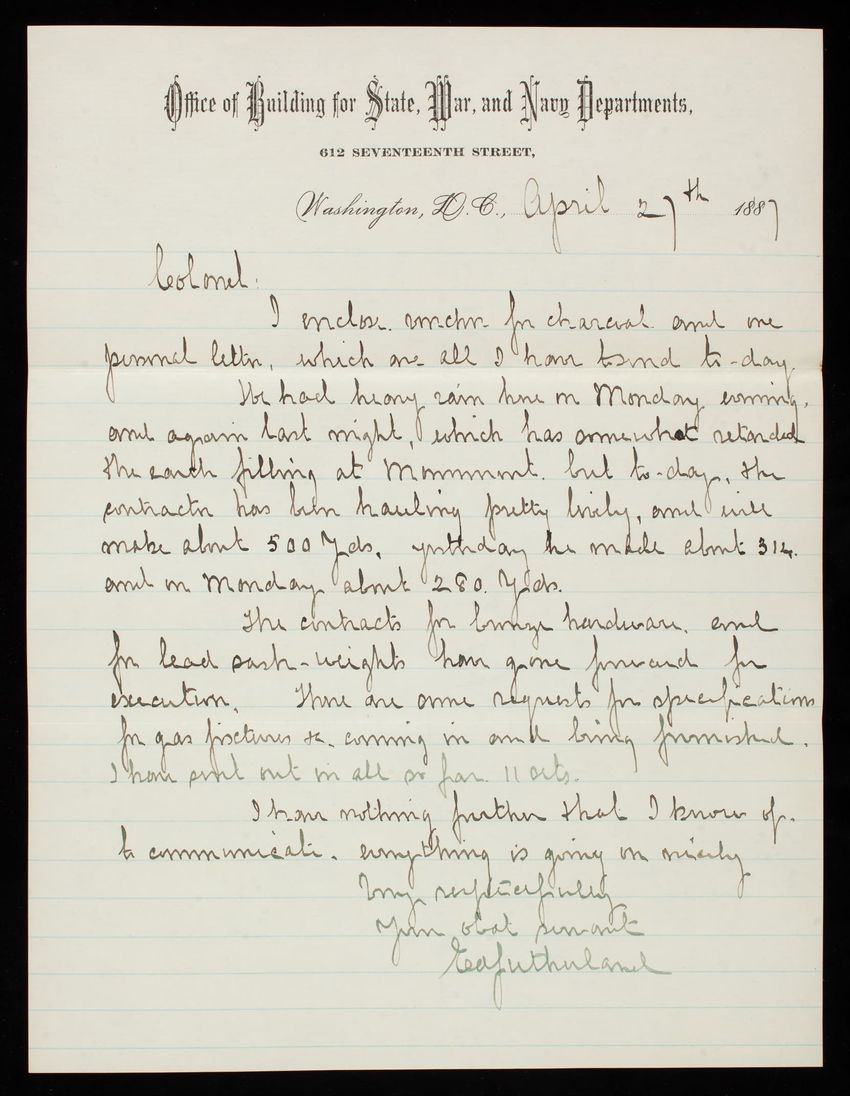 Office of Building for State, War, and Navy Departments,
612 SEVENTEENTH STREET,
Washington, D.C., April 27th 1887
Colonel:
I enclose voucher for charcoal and one
personal letter, which are all I have to send to-day.
We had heavy rain here on Monday evening,
and again last night, which has somewhat retarded
the earth filling at Monument. but to-day, the
contractor has been hauling pretty lively, and will
make about 500 Yds, yesterday he made about 314.
and on Monday about 280. Yds.
The contracts for bronze hardware, and
for lead sash-weights have gone forward for
execution. There are some requests for specifications
for gas fixtures &c. coming in and being furnished.
I have sent out in all so far. 11 sets.
I have nothing further that I know of.
to communicate. everything is going on nicely
Very respectfully
Your obdt servant
EdSutherland